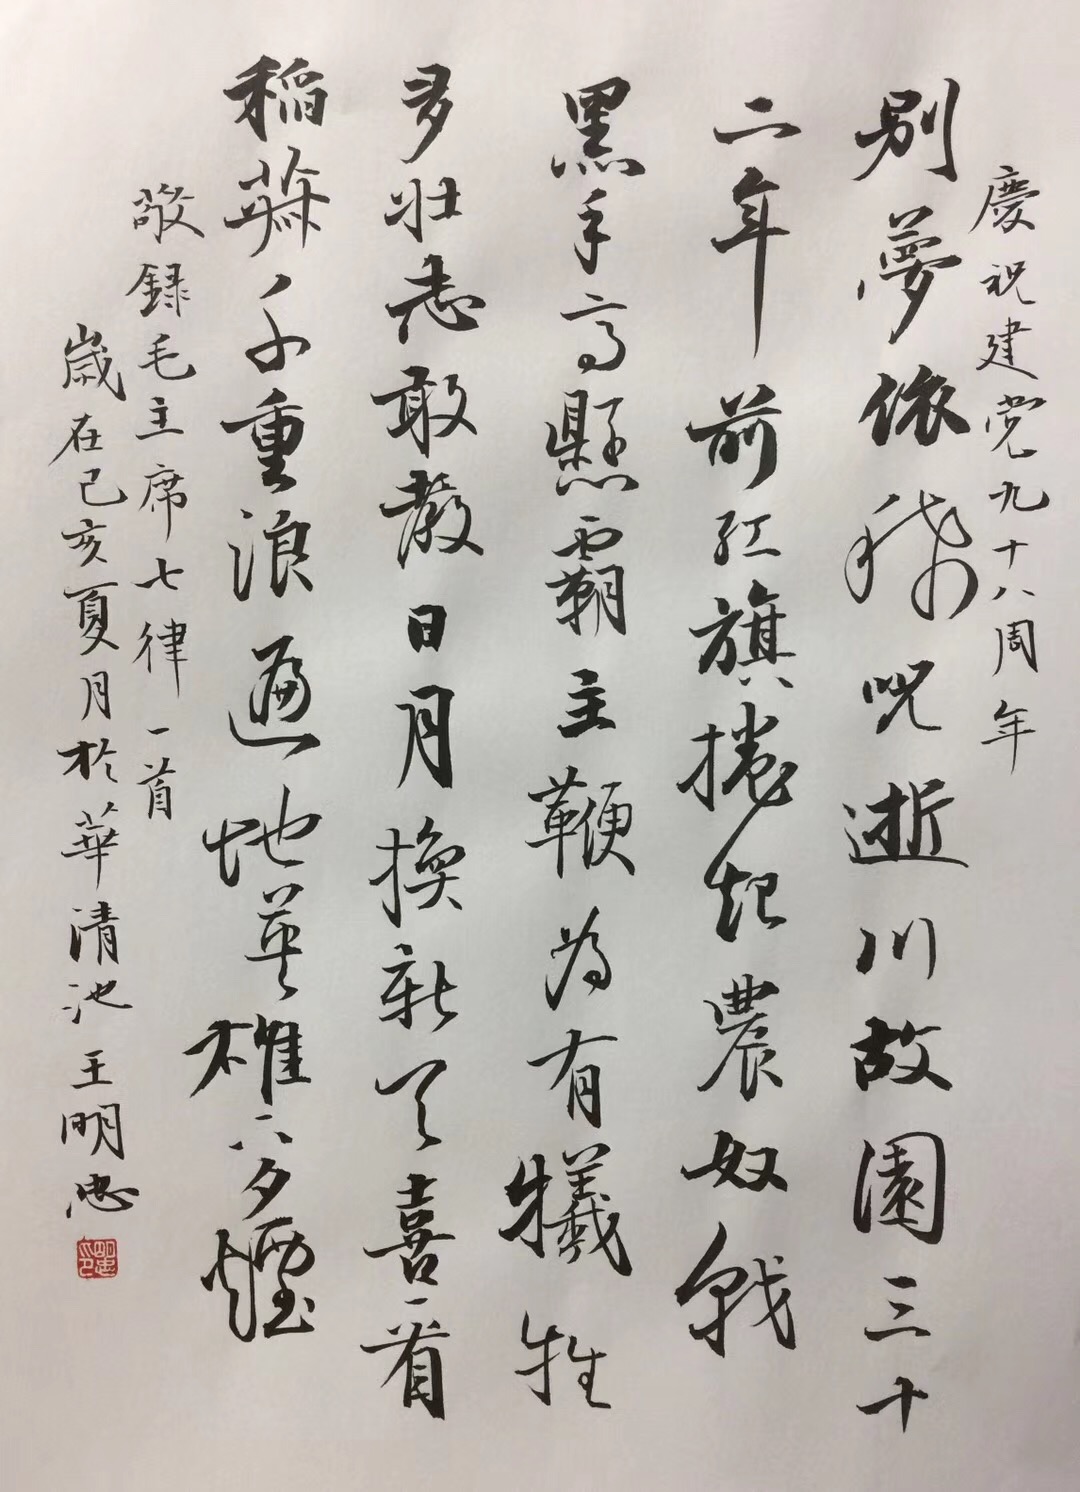 慶祝建党九十八周年
别夢依稀咒逝川故園三十
二年前紅旗捲起農奴戟
黑手高懸霸主鞭為有犧牲
多壮志敢教日月換新天喜看
稻菽千重浪遍地英雄下夕煙
敬録毛主席七律一首
歲在己亥夏月於華清池王明忠
明忠印